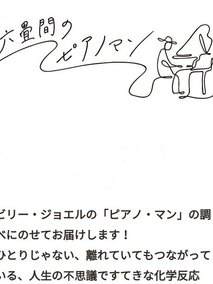 六畳間の
ピアノマン
ビリー・ジョエルの「ピアノ・マン」の調
べにのせてお届けします！
ひとりじゃない、離れていてもつながって
いる、人生の不思議ですてきな化学反応